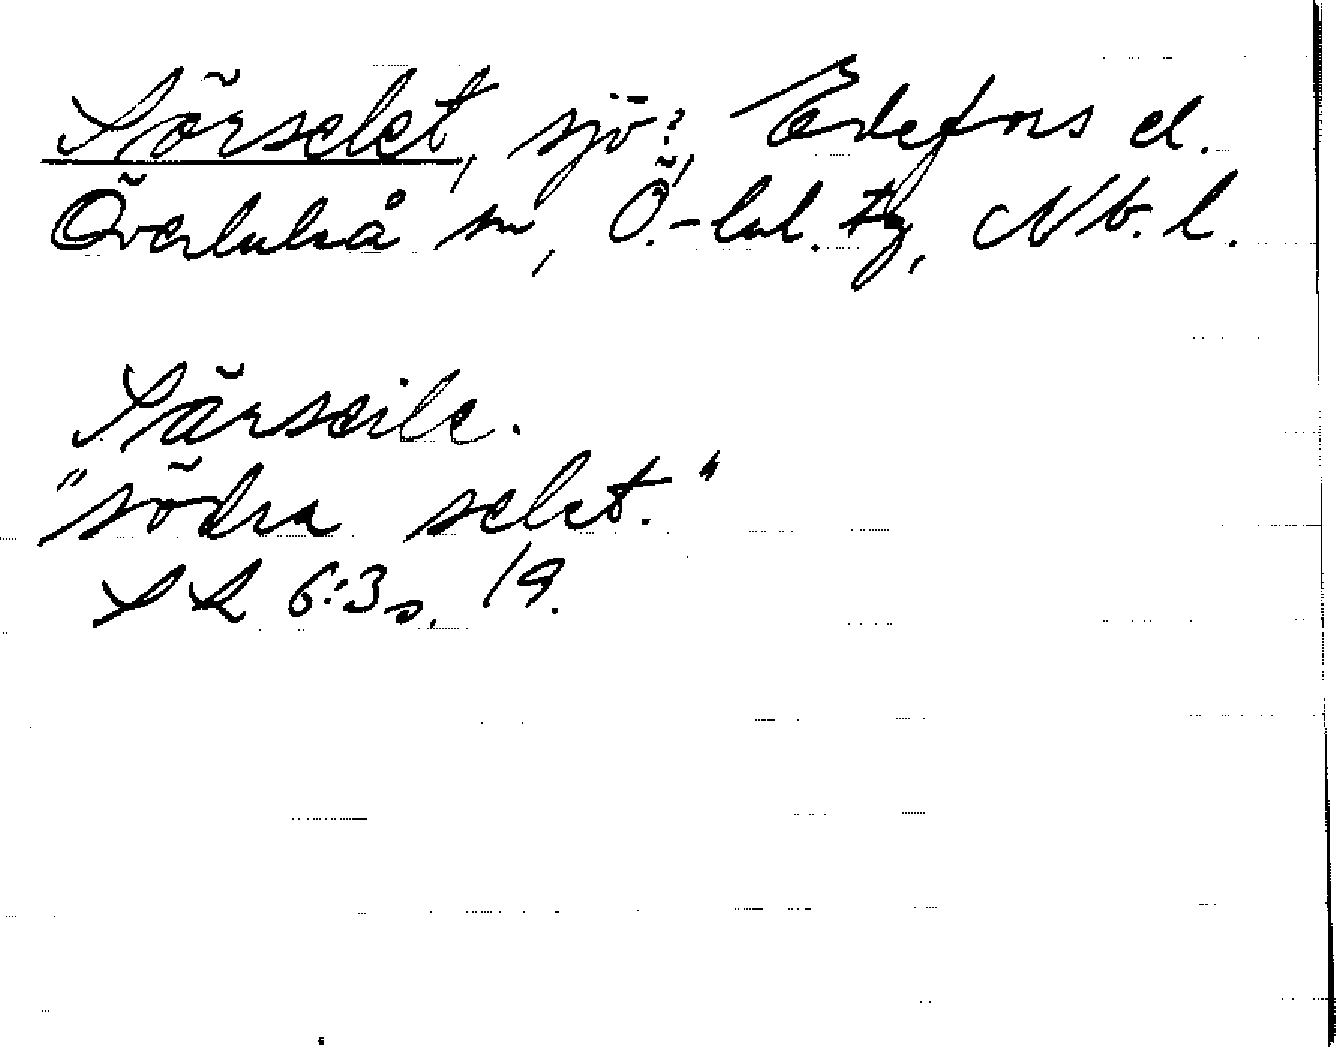 Sörselet, sjö?, Edefors el.
Överluleå sn, Ö.-lul. tg, Nb. l.
Särseile.
"södra selet."
SL 6:3 s. 19.